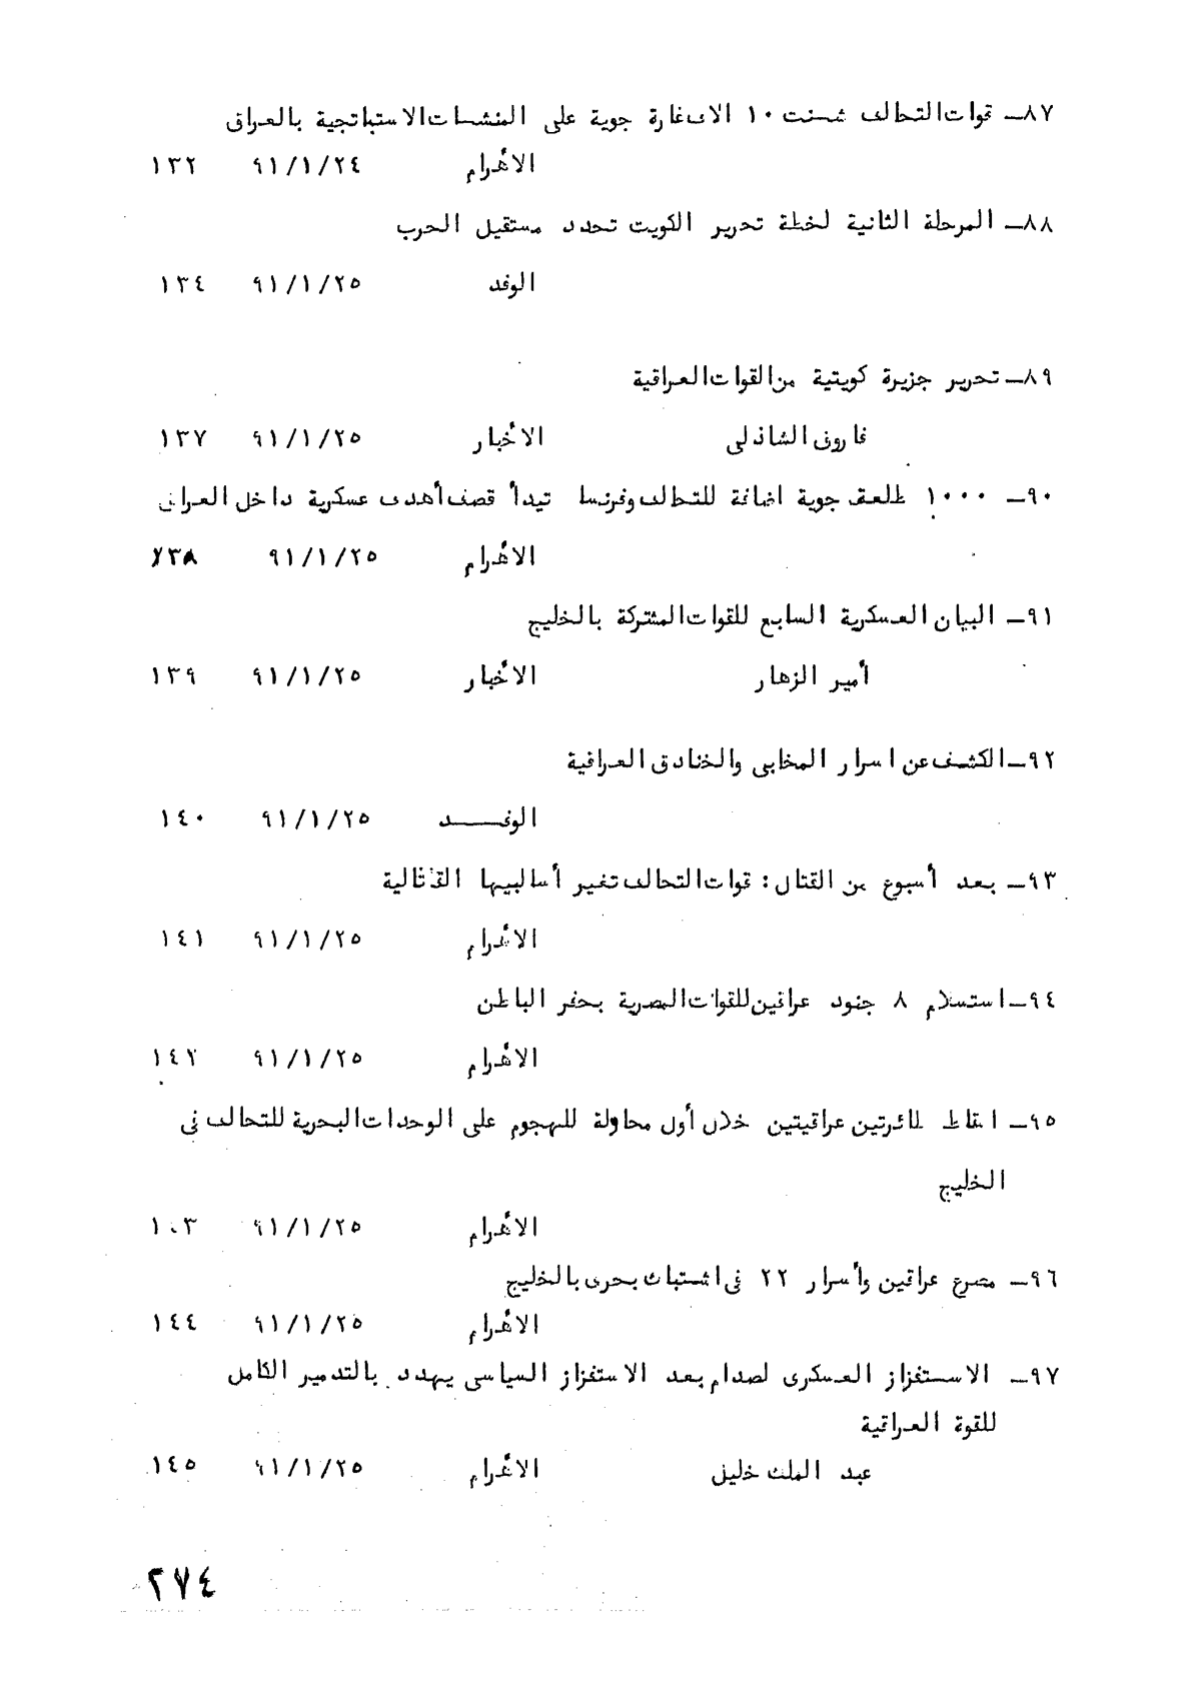 ٨٧ــ قوات التحالف شـنت ١٠ الاف غارة جوية على المنشـات الاستباتجية بالعراق
الأهرام ٩١/١/٢٤ ١٣٢
٨٨ــ المرحلة الثانية لخطة تحرير الكويت تحدد مستقيل الحرب
الوفد ٩١/١/٢٥ ١٣٤
٨٩ــ تحرير جزيرة كويتية من القوات العراقية
فاروق الشاذلى الأخبار ٩١/١/٢٥ ١٣٧
٩٠ــ ١٠٠٠ طلعة جوية اضافة للتحالف وفرنسا تيدأ قصف أهدف عسكرية داخل العراق
الأهرام ٩١/١/٢٥ ١٣٨
٩١ــ البيان العسكرية السابع للقوات المشتركة بالخليج
أمير الزهار الأخبار ٩١/١/٢٥ ١٣٩
٩٢ــ الكشف عن اسرار المخابى والخنادق العراقية
الوفــــد ٩١/١/٢٥ ١٤٠
٩٣ــ بعد أسبوع من القتال : قوات التحالف تغير أسالبيها القتالية
الأهرام ٩١/١/٢٥ ١٤١
٩٤ــ استسلام ٨ جنود عراقين للقوات المصرية بحفر الباطن
الأهرام ٩١/١/٢٥ ١٤٢
٩٥ــ اسقاط طائرتين عراقيتين خلال أول محاولة للهجوم على الوحدات البحرية للتحالف فى
الخليج
الأهرام ٩١/١/٢٥ ١٠٣
٩٦ــ مصرع عراقين وأسرار ٢٢ فى اشتباك بحرى بالخليج
الأهرام ٩١/١/٢٥ ١٤٤
٩٧ــ الاستفزاز العسكرى لصدام بعد الاستفزاز السياسى يهدد بالتدمير الكامل
للقوة العراقية
عبد الملك خليل الأهرام ٩١/١/٢٥ ١٤٥
٢٧٤